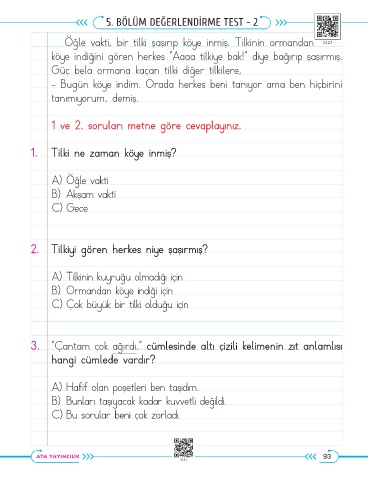 5. BÖLÜM DEĞERLENDİRME TEST - 2
Öğle vakti, bir tilki şaşırıp köye inmiş. Tilkinin ormandan
köye indiğini gören herkes "Aaaa tilkiye bak!" diye bağırıp şaşırmış.
Güç bela ormana kaçan tilki diğer tilkilere,
- Bugün köye indim. Orada herkes beni tanıyor ama ben hiçbirini
tanımıyorum.. demiş.
1 ve 2. soruları metne göre cevaplayınız.
1. Tilki ne zaman köye inmiş?
A) Öğle vakti
B) Akşam vakti
C) Gece
2. Tilkiyi gören herkes niye şaşırmış?
A) Tilkinin kuyruğu olmadığı için
B) Ormandan köye indiği için
C) Çok büyük bir tilki olduğu için
3. "Çantam çok ağırdı." cümlesinde altı çizili kelimenin zıt anlamlısı
hangi cümlede vardır?
A) Hafif olan poşetleri ben taşıdım.
B) Bunları taşıyacak kadar kuvvetli değildi.
C) Bu sorular beni çok zorladı.
ATA YAYINCILIK
93